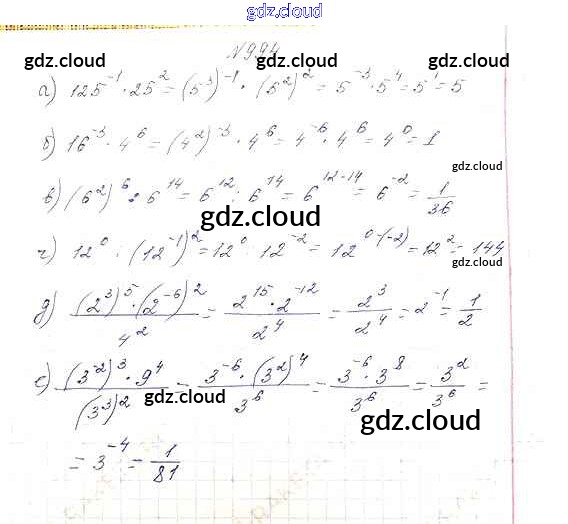 gdz.cloud
№994
gdz.cloud gdz.cloud
а) 125⁻¹ · 25² = (5³)⁻¹ · (5²)² = 5⁻³ · 5⁴ = 5¹ = 5
б) 16⁻³ · 4⁶ = (4²)⁻³ · 4⁶ = 4⁻⁶ · 4⁶ = 4⁰ = 1
gdz.cloud
в) (6²)⁶ : 6¹⁴ = 6¹² : 6¹⁴ = 6¹²⁻¹⁴ = 6⁻² = 1/36
gdz.cloud
г) 12⁰ : (12⁻¹)² = 12⁰ : 12⁻² = 12⁰⁻⁽⁻²⁾ = 12² = 144
gdz.cloud
д) (2³)⁵ · (2⁻⁶)² / 4² = 2¹⁵ · 2⁻¹² / 2⁴ = 2³ / 2⁴ = 2⁻¹ = 1/2
е) (3⁻²)³ · 9⁴ / (3³)² = 3⁻⁶ · (3²)⁴ / 3⁶ = 3⁻⁶ · 3⁸ / 3⁶ = 3² / 3⁶ =
gdz.cloud
gdz.cloud
= 3⁻⁴ = 1/81